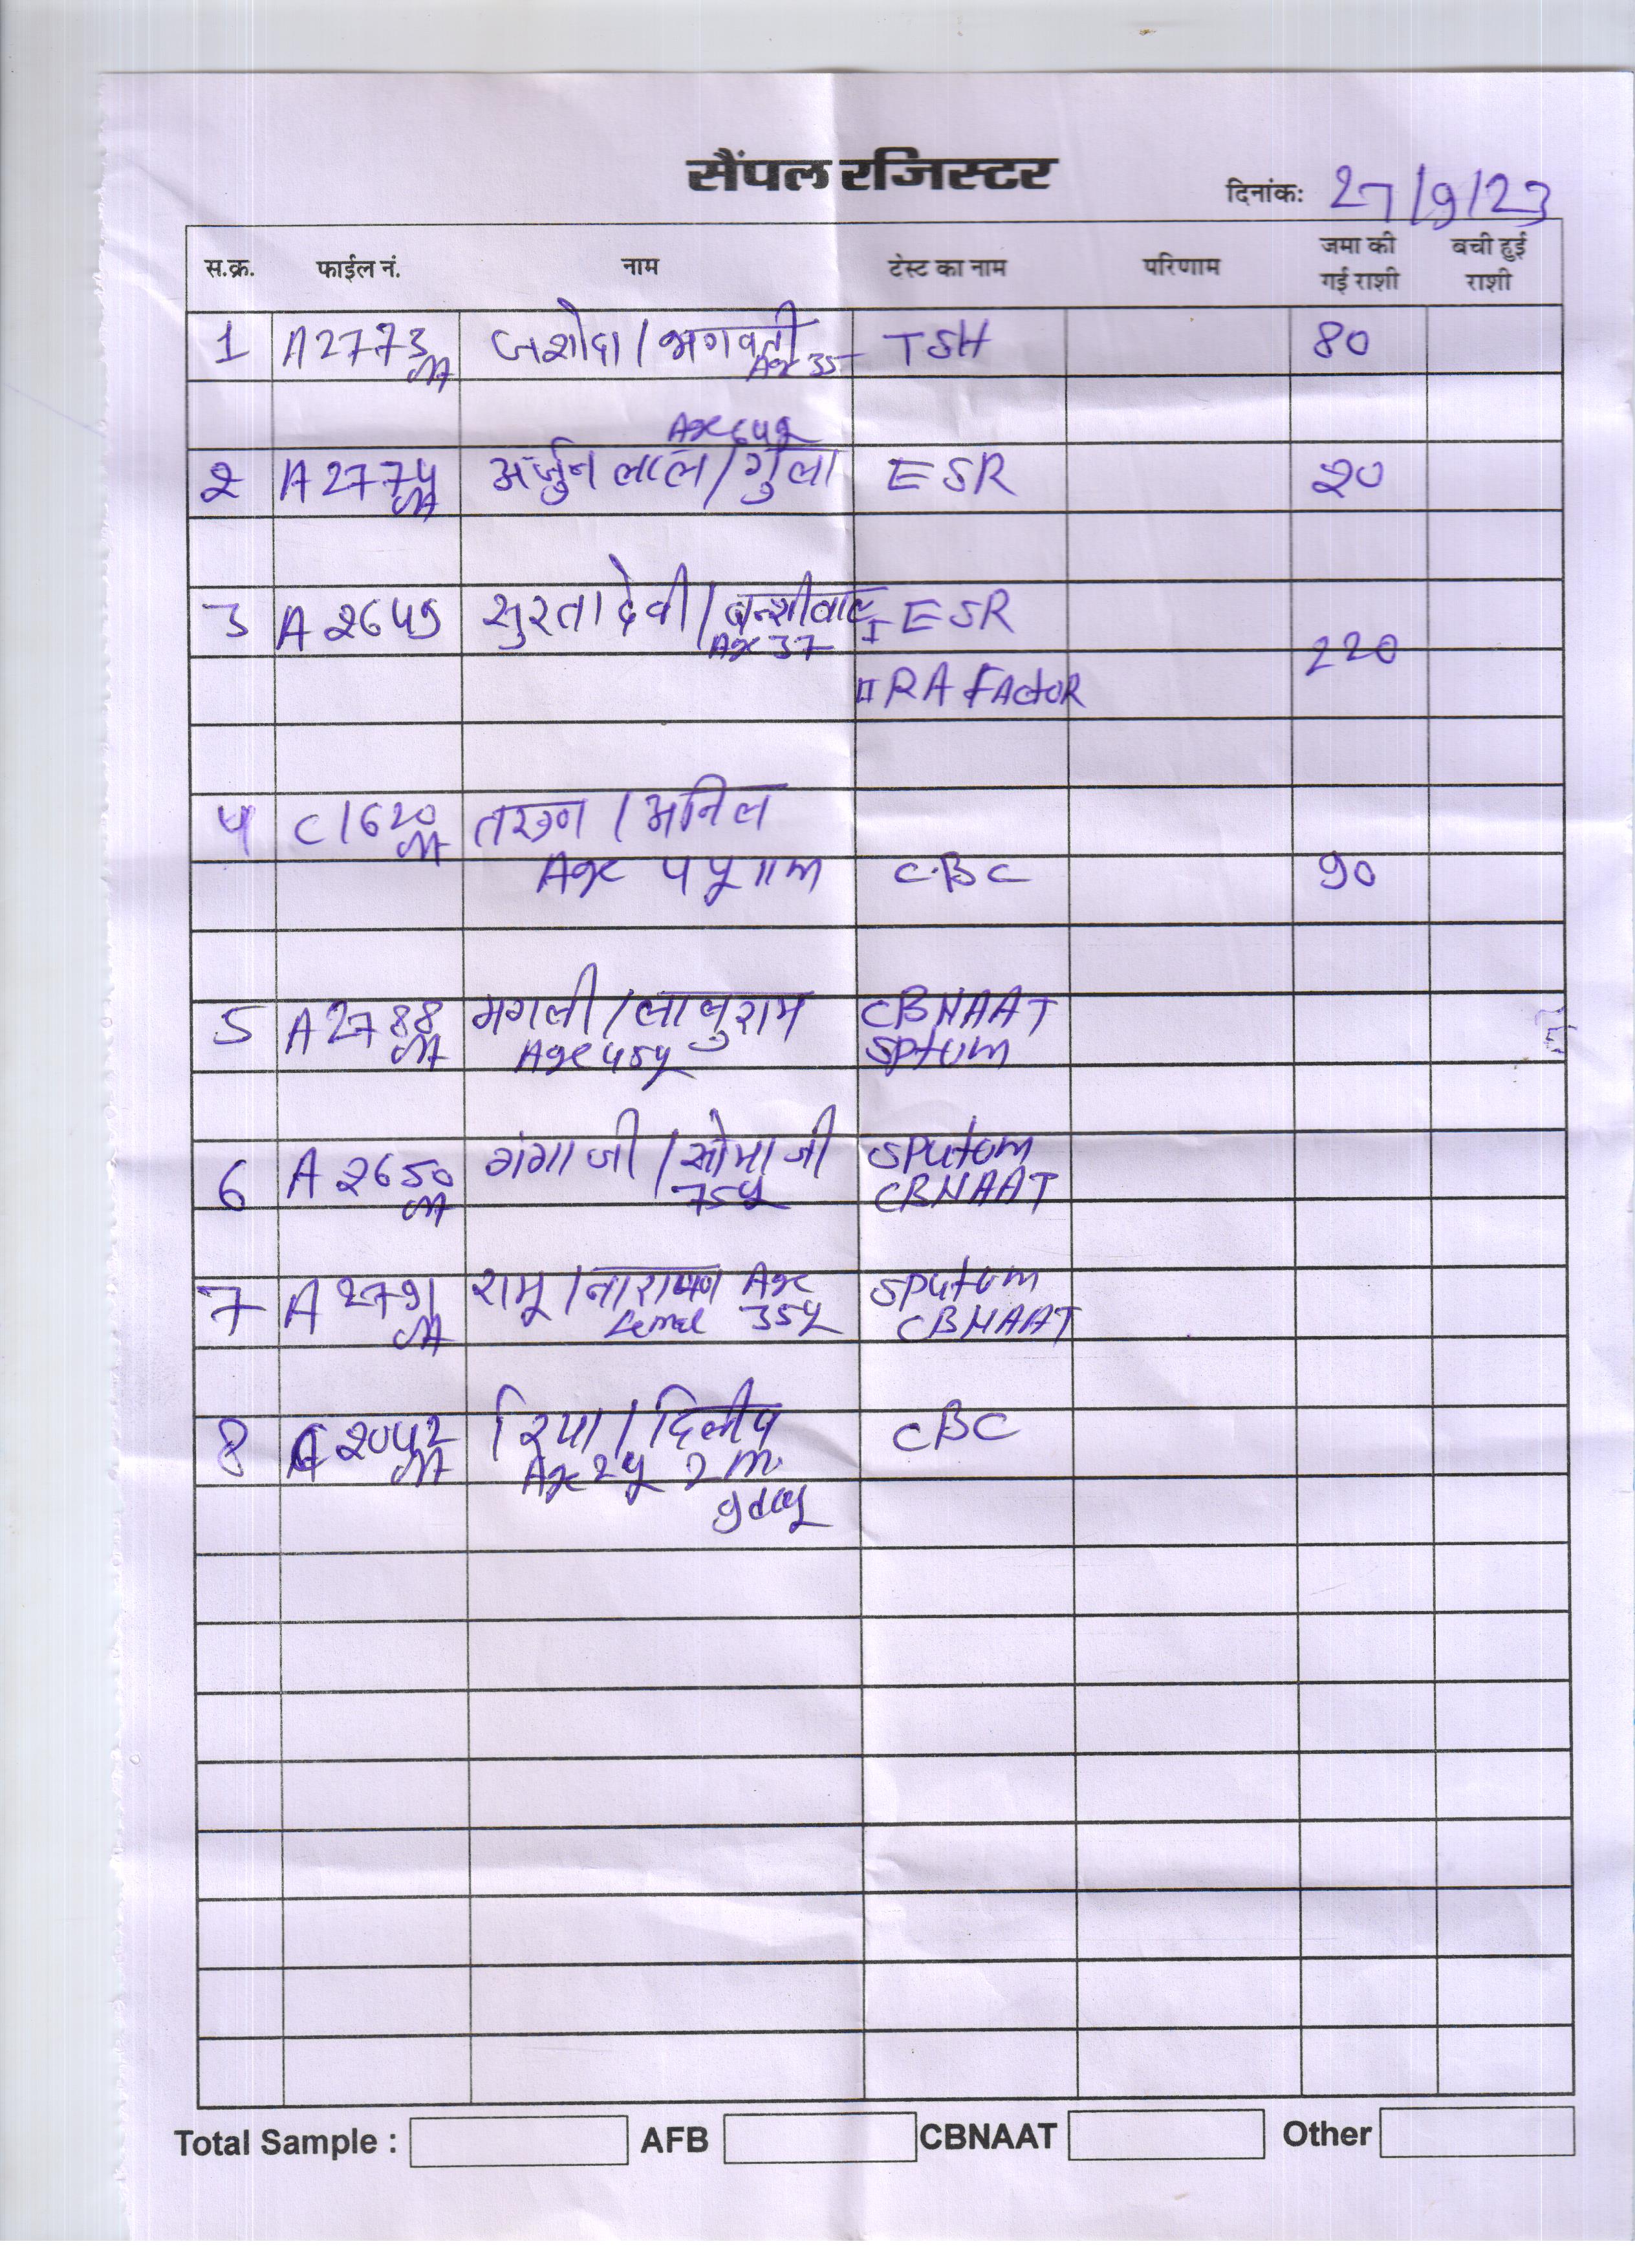 सैंपल रजिस्टर
दिनांक: 27/9/23
स.क्र. फाईल नं. नाम टेस्ट का नाम परिणाम जमा की गई राशी बची हुई राशी
1 A2773 जशोदा / भगवती TSH 80
Age 35
Age 64y
2 A2774 अर्जुन लाल / गुला ESR 20
3 A2649 सुरता देवी / बन्शीलाल I ESR
Age 37 220
II RA FActoR
4 C1620 तरुण / अनिल
Age 4y 11m CBC 90
5 A2788 मगली / लालुराम CBNAAT
Age 45y Sptum
6 A2650 गंगा जी / सोमा जी Sputum
75y CBNAAT
7 A2791 रामू / नारायण Age Sputum
35y CBNAAT
8 2042 रिया / दिलीप CBC
Age 2y 2m
9day
Total Sample : AFB CBNAAT Other